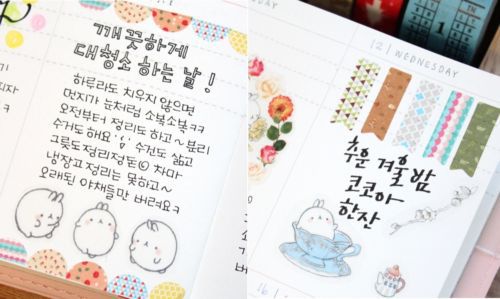 깨끗하게
대청소 하는 날!
하루라도 치우지 않으면
먼지가 눈처럼 소복소복ㅋㅋ
오전부터 정리도 하고~ 분리
수거도 해요 수건도 삶고
그릇도 정리정돈 차마
냉장고 정리는 못하고~
오래된 야채들만 버려요ㅋ
12 WEDNESDAY
추운 겨울밤
코코아
한잔
16